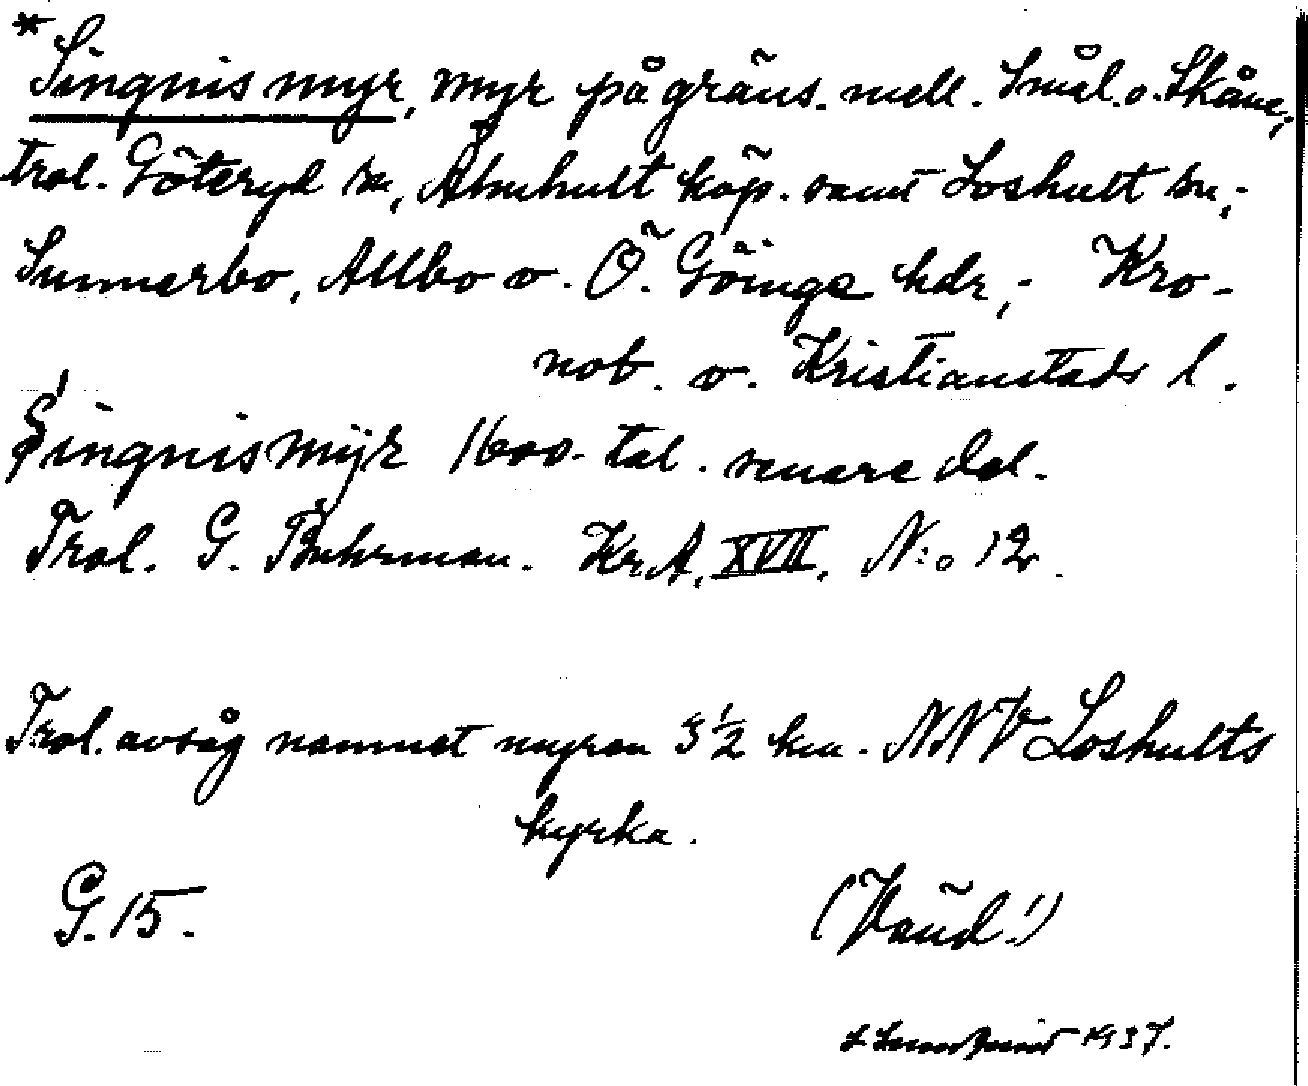 *Singnis myr, myr på gräns. mell. Smål. o. Skåne,
trol. Göteryd sn, Älmhult köp. samt Loshult sn,-
Sunnerbo, Allbo o. Ö. Göinge hdr,- Kro-
nob. o. Kristianstads l.
Singnis mÿr 1600-tal. senare del.
Trol. G. Buhrman. Kr.A. XVII. N:o 12.
Trol. avsåg namnet myren 3½ km. NNV Loshults
kyrka.
G. 15.
(Vänd!)
1937.